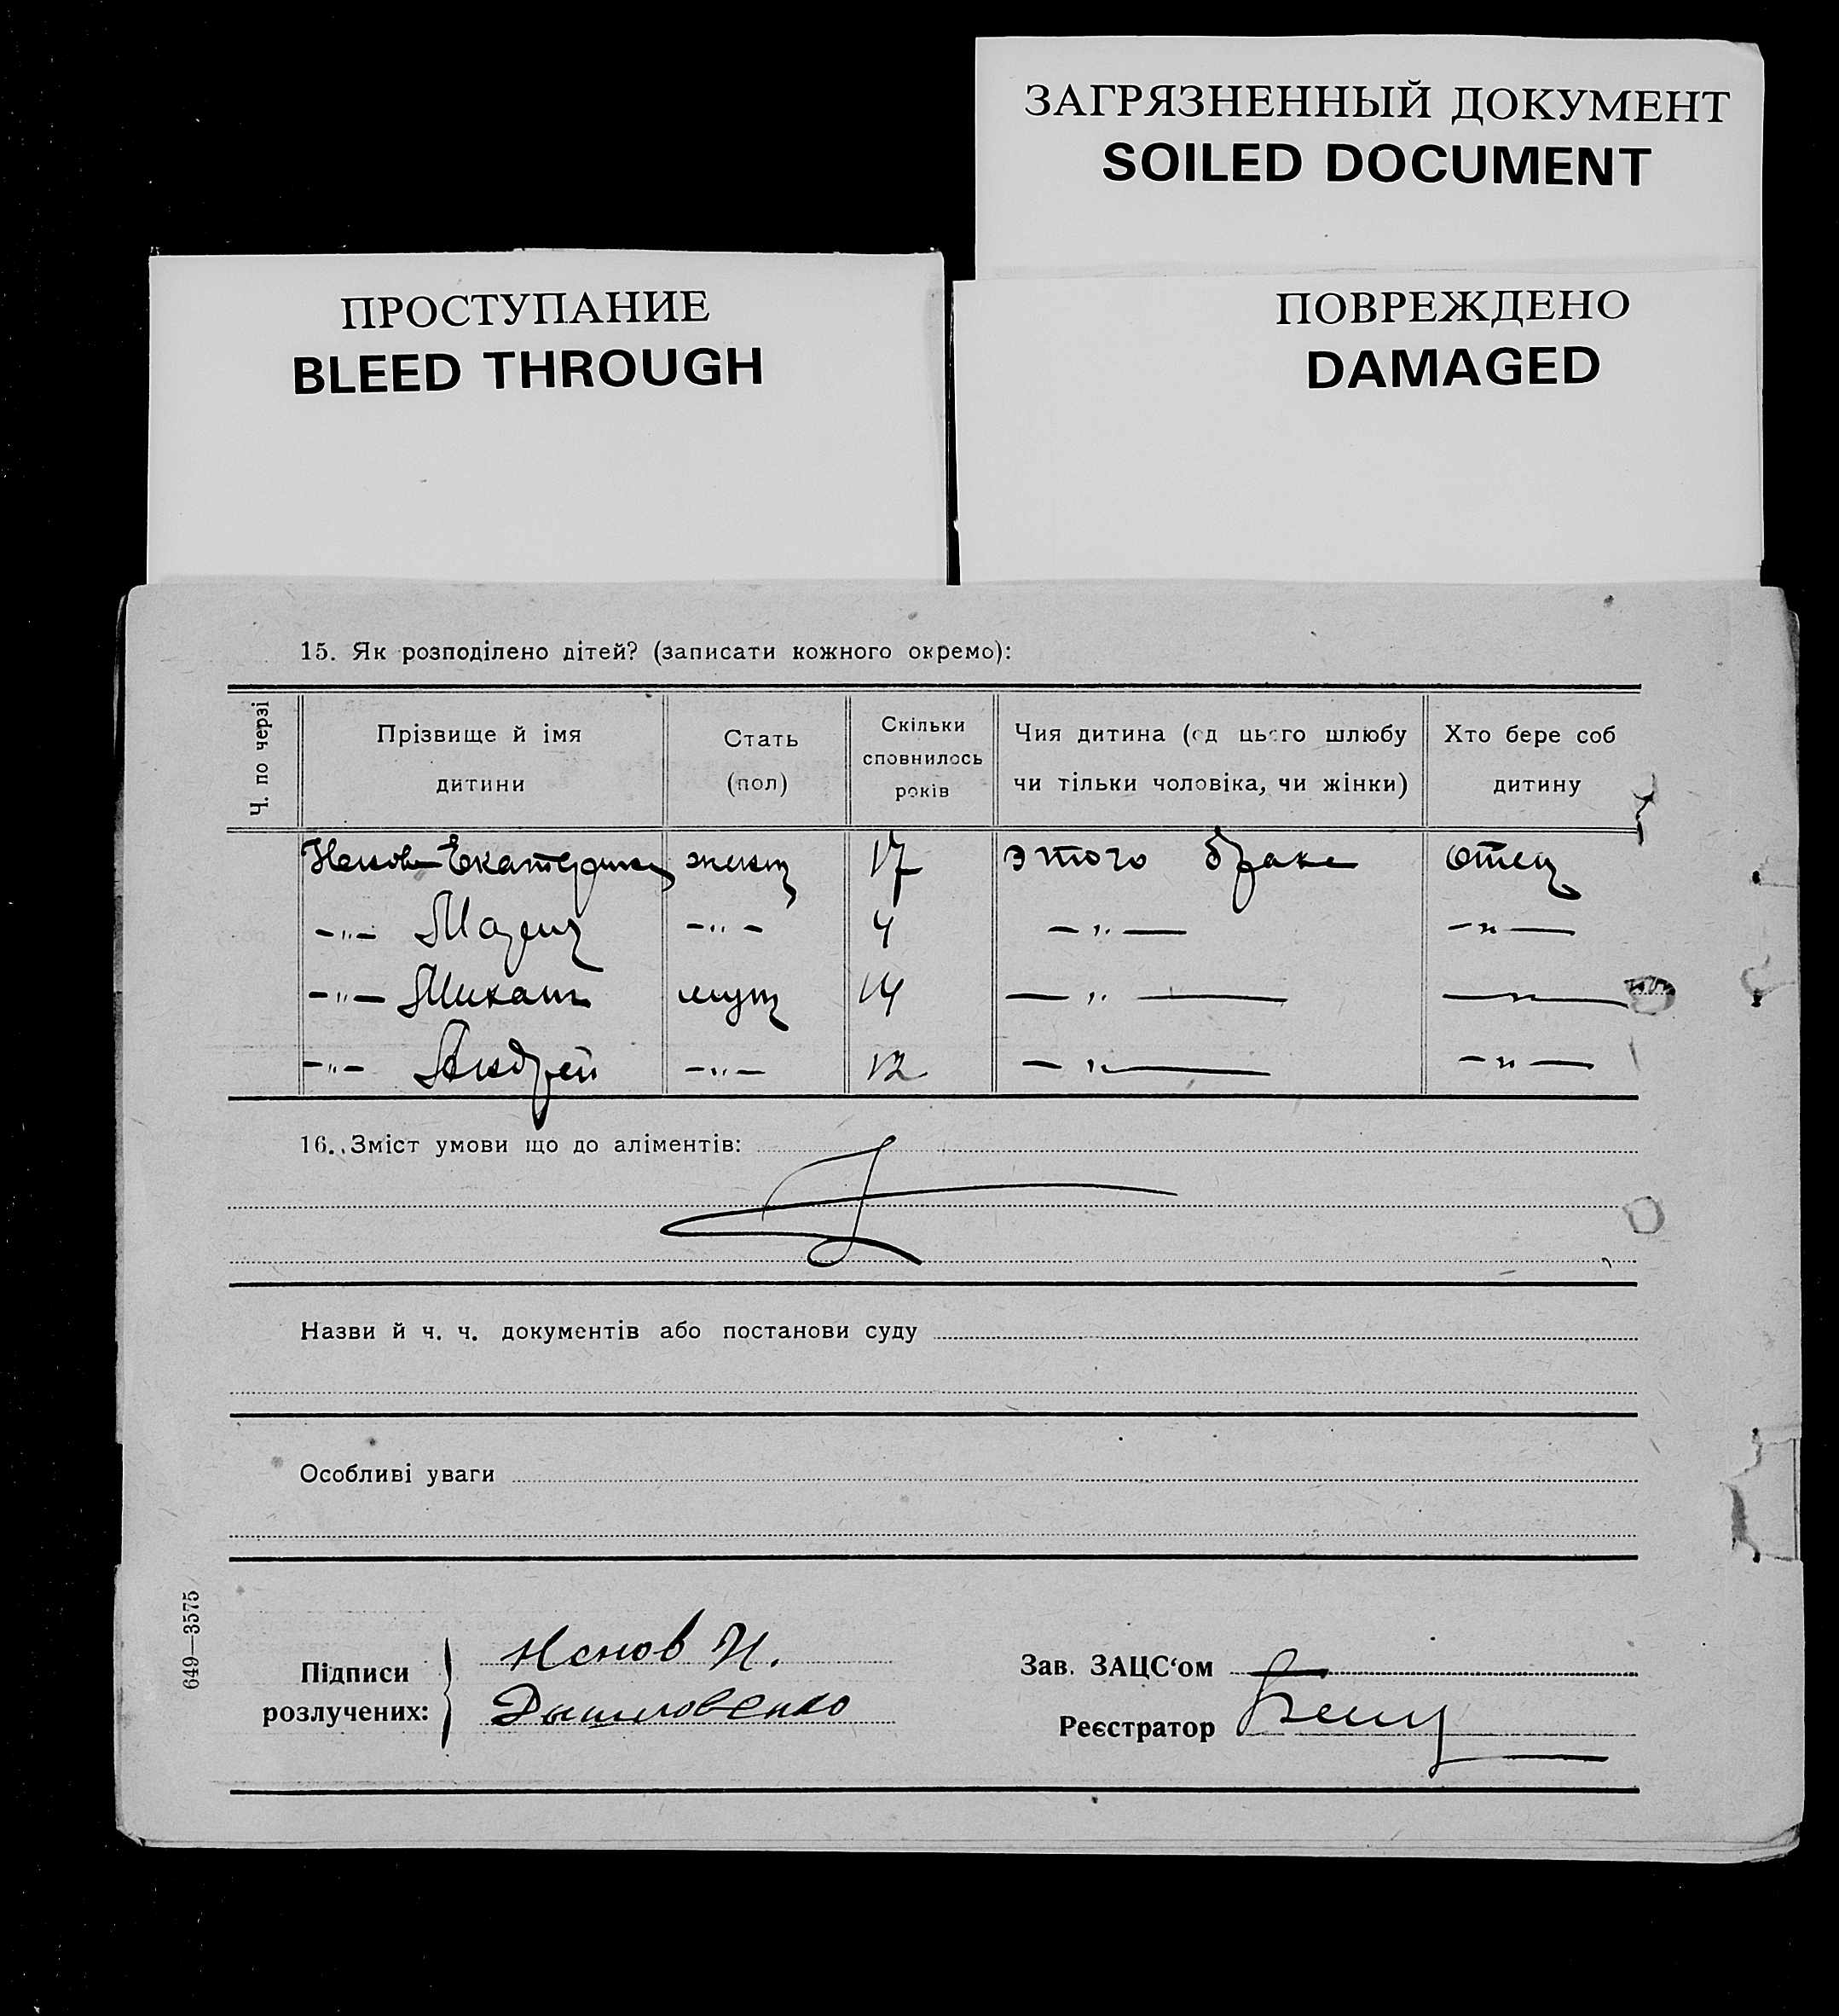 ЗАГРЯЗНЕННЫЙ ДОКУМЕНТ
SOILED DOCUMENT
ПРОСТУПАНИЕ
BLEED THROUGH
ПОВРЕЖДЕНО
DAMAGED
15. Як розподілено дітей? (записати кожного окремо):
Ч. по черзі
Прізвище й імя
дитини
Стать
(пол)
Скільки
сповнилось
років
Чия дитина (од цього шлюбу
чи тільки чоловіка, чи жінки)
Хто бере соб
дитину
Екатерина 17 этого брака отец
-"- Мария -"- 4 -"- -"-
-"- Михаил 14 -"- -"-
-"- Андрей -"- 12 -"- -"-
16. Зміст умови що до аліментів:
Назви й ч. ч. документів або постанови суду
Особливі уваги
649—3575
Підписи
розлучених:
Ненов И.
Зав. ЗАЦС‘ом
Реєстратор